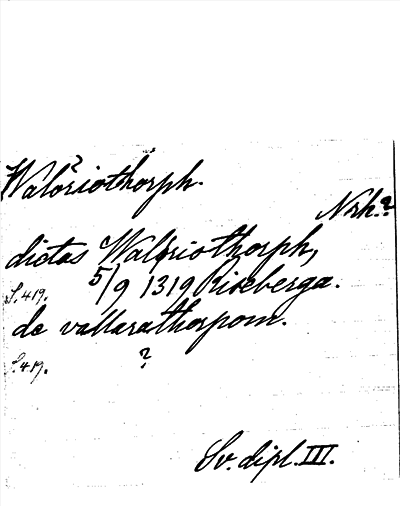 ?
Walöriothorph.
Nrk.?
dictas Waloriothorph,
S. 419. 5/9 1319 Riseberga.
de vallarathorpom.
S. 419. ?
Sv. dipl. III.